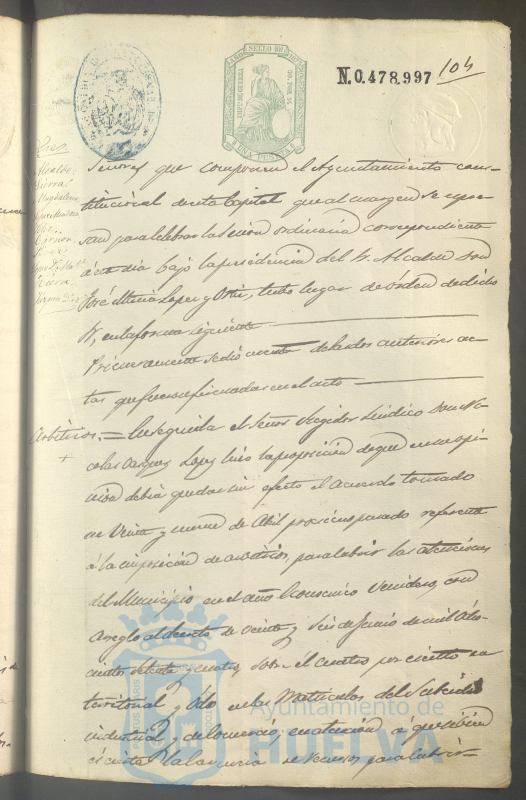 AÑO SELLO 10º 1875
IMPº DE GUERRA
UNA PESETA
N.0.478.997
104
Alcalde
Sierra
Magdalena
Señores que componen el Ayuntamiento cons-
titucional de esta Capital que al margen se expre-
san para celebrar la sesion ordinaria correspondiente
á este dia bajo la presidencia del Sr. Alcalde Don
José Maria Lopez y Ortiz, tubo lugar de órden de dicho
Sr, en la forma siguiente
Primeramente se dió cuenta de las dos anteriores ac-
tas que fueron firmadas en el acto
Arbitrios. = En seguida el Señor Regidor Sindico Don Ni-
colas Vazquez Lopez hizo la proposicion de que en su opi-
nion debia quedar sin efecto el Acuerdo tomado
en Veinte y nueve de Abil proximo pasado referente
á la imposicion de arbitrios, para cubrir las atenciones
del Municipio en el año Economico Venidero, con
arreglo al decreto de Veinte y Seis de Junio de mil ocho-
cientos setenta y cuatro, sobre el cuatro por ciento en
territorial y Ocho en las Matriculas del Subsidio
industrial y de Comercio, en atencion á que si bien
es cierta la carencia de recursos para cubrir
PORTUS MARIS
Ayuntamiento de
HUELVA